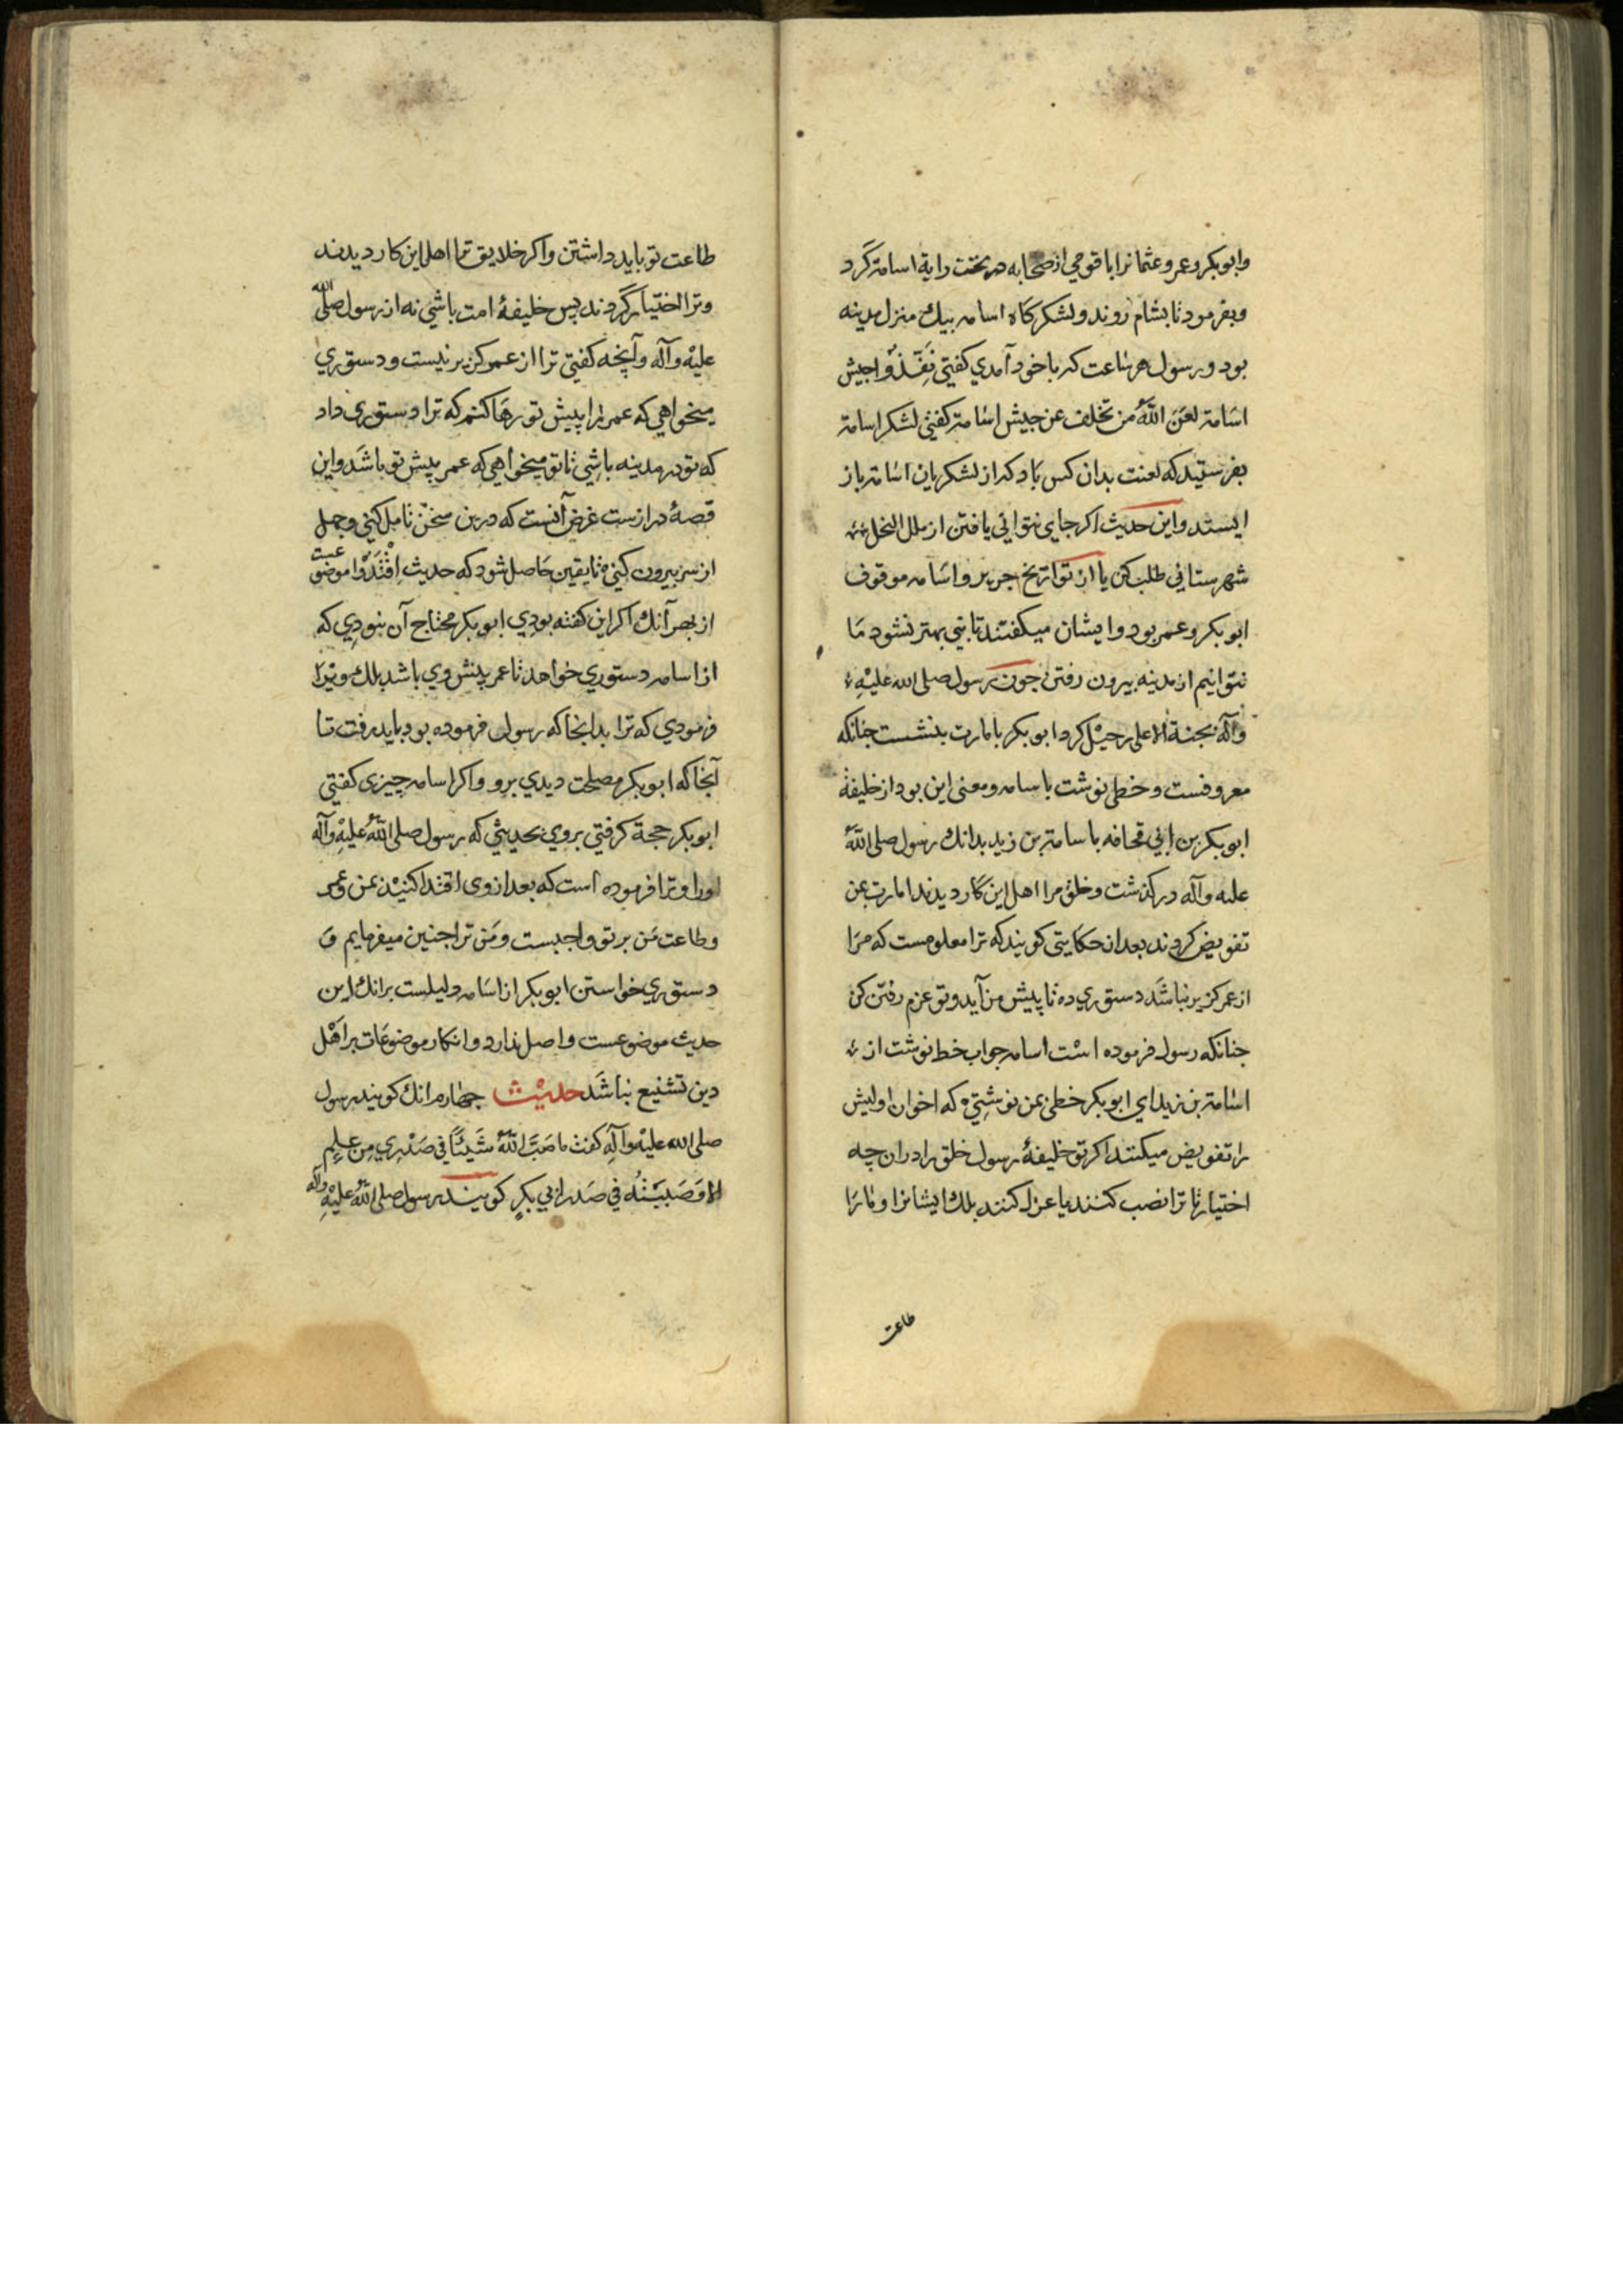 وابوبکر وعمر وعثمانرا با قومی از صحابه در تحت رایة اسامة کرد
وبفرمود تا بشام روند ولشکر کاه اسامه بیک منزل مدینه
بود ورسول هر ساعت که باخود آمدی کفتی نَفِّذُوا جیش
اسامة لعن اللّٰهُ من تخلف عن جیش اسامة کفتی لشکر اسامة
بفرستید که لعنت بدان کس باد که از لشکریان اسامة باز
ایستد واین حدیث اکر جای نتوانی یافتن از ملل النحل
شهرستانی طلب کن یا از تواریخ جریر واسامه موقوف
ابوبکر وعمر بود وایشان میکفتند تا نبی بهتر نشود ما
نتوانیم از مدینه بیرون رفتن جون رسول صلی الله علیهِ
وآله بجنة الاعلی رحیل کرد ابوبکر بامارت بنشست جنانکه
معروفست وخطی نوشت باسامه ومعنی این بود از خلیفهٔ
ابوبکر بن ابی قحافه باسامة بن زید بدانک رسول صلی اللّٰهُ
علیه وآله در کذشت وخلق مرا اهل این کار دیدند امارت بمن
تفویض کردند بعد از حکایتی کویند که ترا معلومست که مرا
از عمر کزیر نباشد دستوری ده تا پیش من آید وتو عزم رفتن کن
جنانکه رسول فرموده است اسامه جواب خط نوشت از
اسامة بن زید ای ابوبکر خطی بمن نوشتی که اخوان اولیش
را تفویض میکنند اکر تو خلیفهٔ رسول خلق را در ان چه
اختیار تا ترا نصب کنند یا عزل کنند بلک ایشانرا و مارا
طاعت
طاعت تو باید داشتن واکر خلایق ترا اهل این کار دیدند
وترا اختیار کردند پس خلیفهٔ امت باشی نه از رسول صلی الله
علیه وآله وآنچه کفتی ترا از عمر کزیر نیست ودستوری
میخواهی که عمر را پیش تو رها کنم که ترا دستوری داد
که تو در مدینه باشی تا تو میخواهی که عمر پیش تو باشد واین
قصهٔ درازست غرض آنست که درین سخن تامل کنی وجهل
از سر بیرون کنی تا یقین حاصل شود که حدیث اِقْتَدُوا موضوعست
از بهر آنک اکر این کفته بودی ابوبکر محتاج آن نبودی که
از اسامه دستوری خواهد تا عمر پیش وی باشد بلک ویرا
فرمودی که ترا بدانجا که رسول فرموده بود باید رفت تا
آنجا که ابوبکر مصلحت دیدی برو واکر اسامه چیزی کفتی
ابوبکر حجة کرفتی بروی بحدیثی که رسول صلی اللّٰهُ علیهِ وآله
اورا وترا فرموده است که بعد از وی اقتدا کنید بمن وعمر
وطاعت من بر تو واجبست ومن ترا جنین میفرمایم و
دستوری خواستن ابوبکر از اسامه دلیلست برانک این
حدیث موضوعست واصل ندارد وانکار موضوعات بر اهل
دین تشنیع نباشد حدیث جهارم انک کویند رسول
صلی الله علیه وآلهِ کفت ما صَبَّ اللّٰهُ شَیْئًا فی صَدْری مِن عِلمٍ
الا وَصَبَبْتُه فی صَدر ابی بکرٍ کویند رسول صلی اللّٰهُ علیْهِ وآله